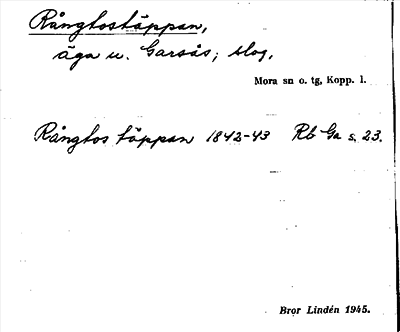 Rångtostäppan,
äga u. Garsås; slog.
Mora sn o. tg, Kopp. l.
Rångtos täppan 1842-43 Rb Ga s. 23.
Bror Lindén 1945.